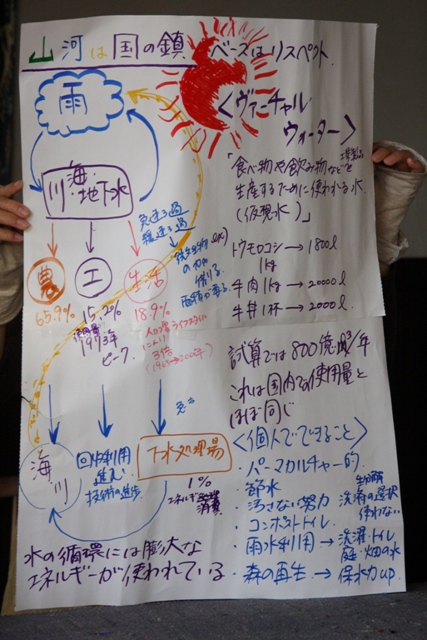 山河は国の鎮 ベースはリスペクト
雨
海
川・地下水
農
工
生活
65.9%
15.2%
18.9%
1973年
ピーク
人口増
3倍
海
川
回収利用
進む
技術の進歩
下水処理場
1%
エネルギー
消費
水の循環には膨大な
エネルギーが使われている
<ヴァーチャル
ウォーター>
「食べ物や飲み物などを 工業製品
生産するために使われる水
(仮想水)」
トウモロコシ → 1800ℓ
1kg
牛肉1kg → 20000ℓ
牛丼1杯 → 2000ℓ
試算では800億㎥/年
これは国内での使用量と
ほぼ同じ
<個人でできること>
・パーマカルチャー的
・節水
・汚さない努力
洗剤の選択
使わない
・コンポストトイレ
・雨水利用 → 洗濯・トイレ
庭・畑の水
・森の再生 → 保水力up